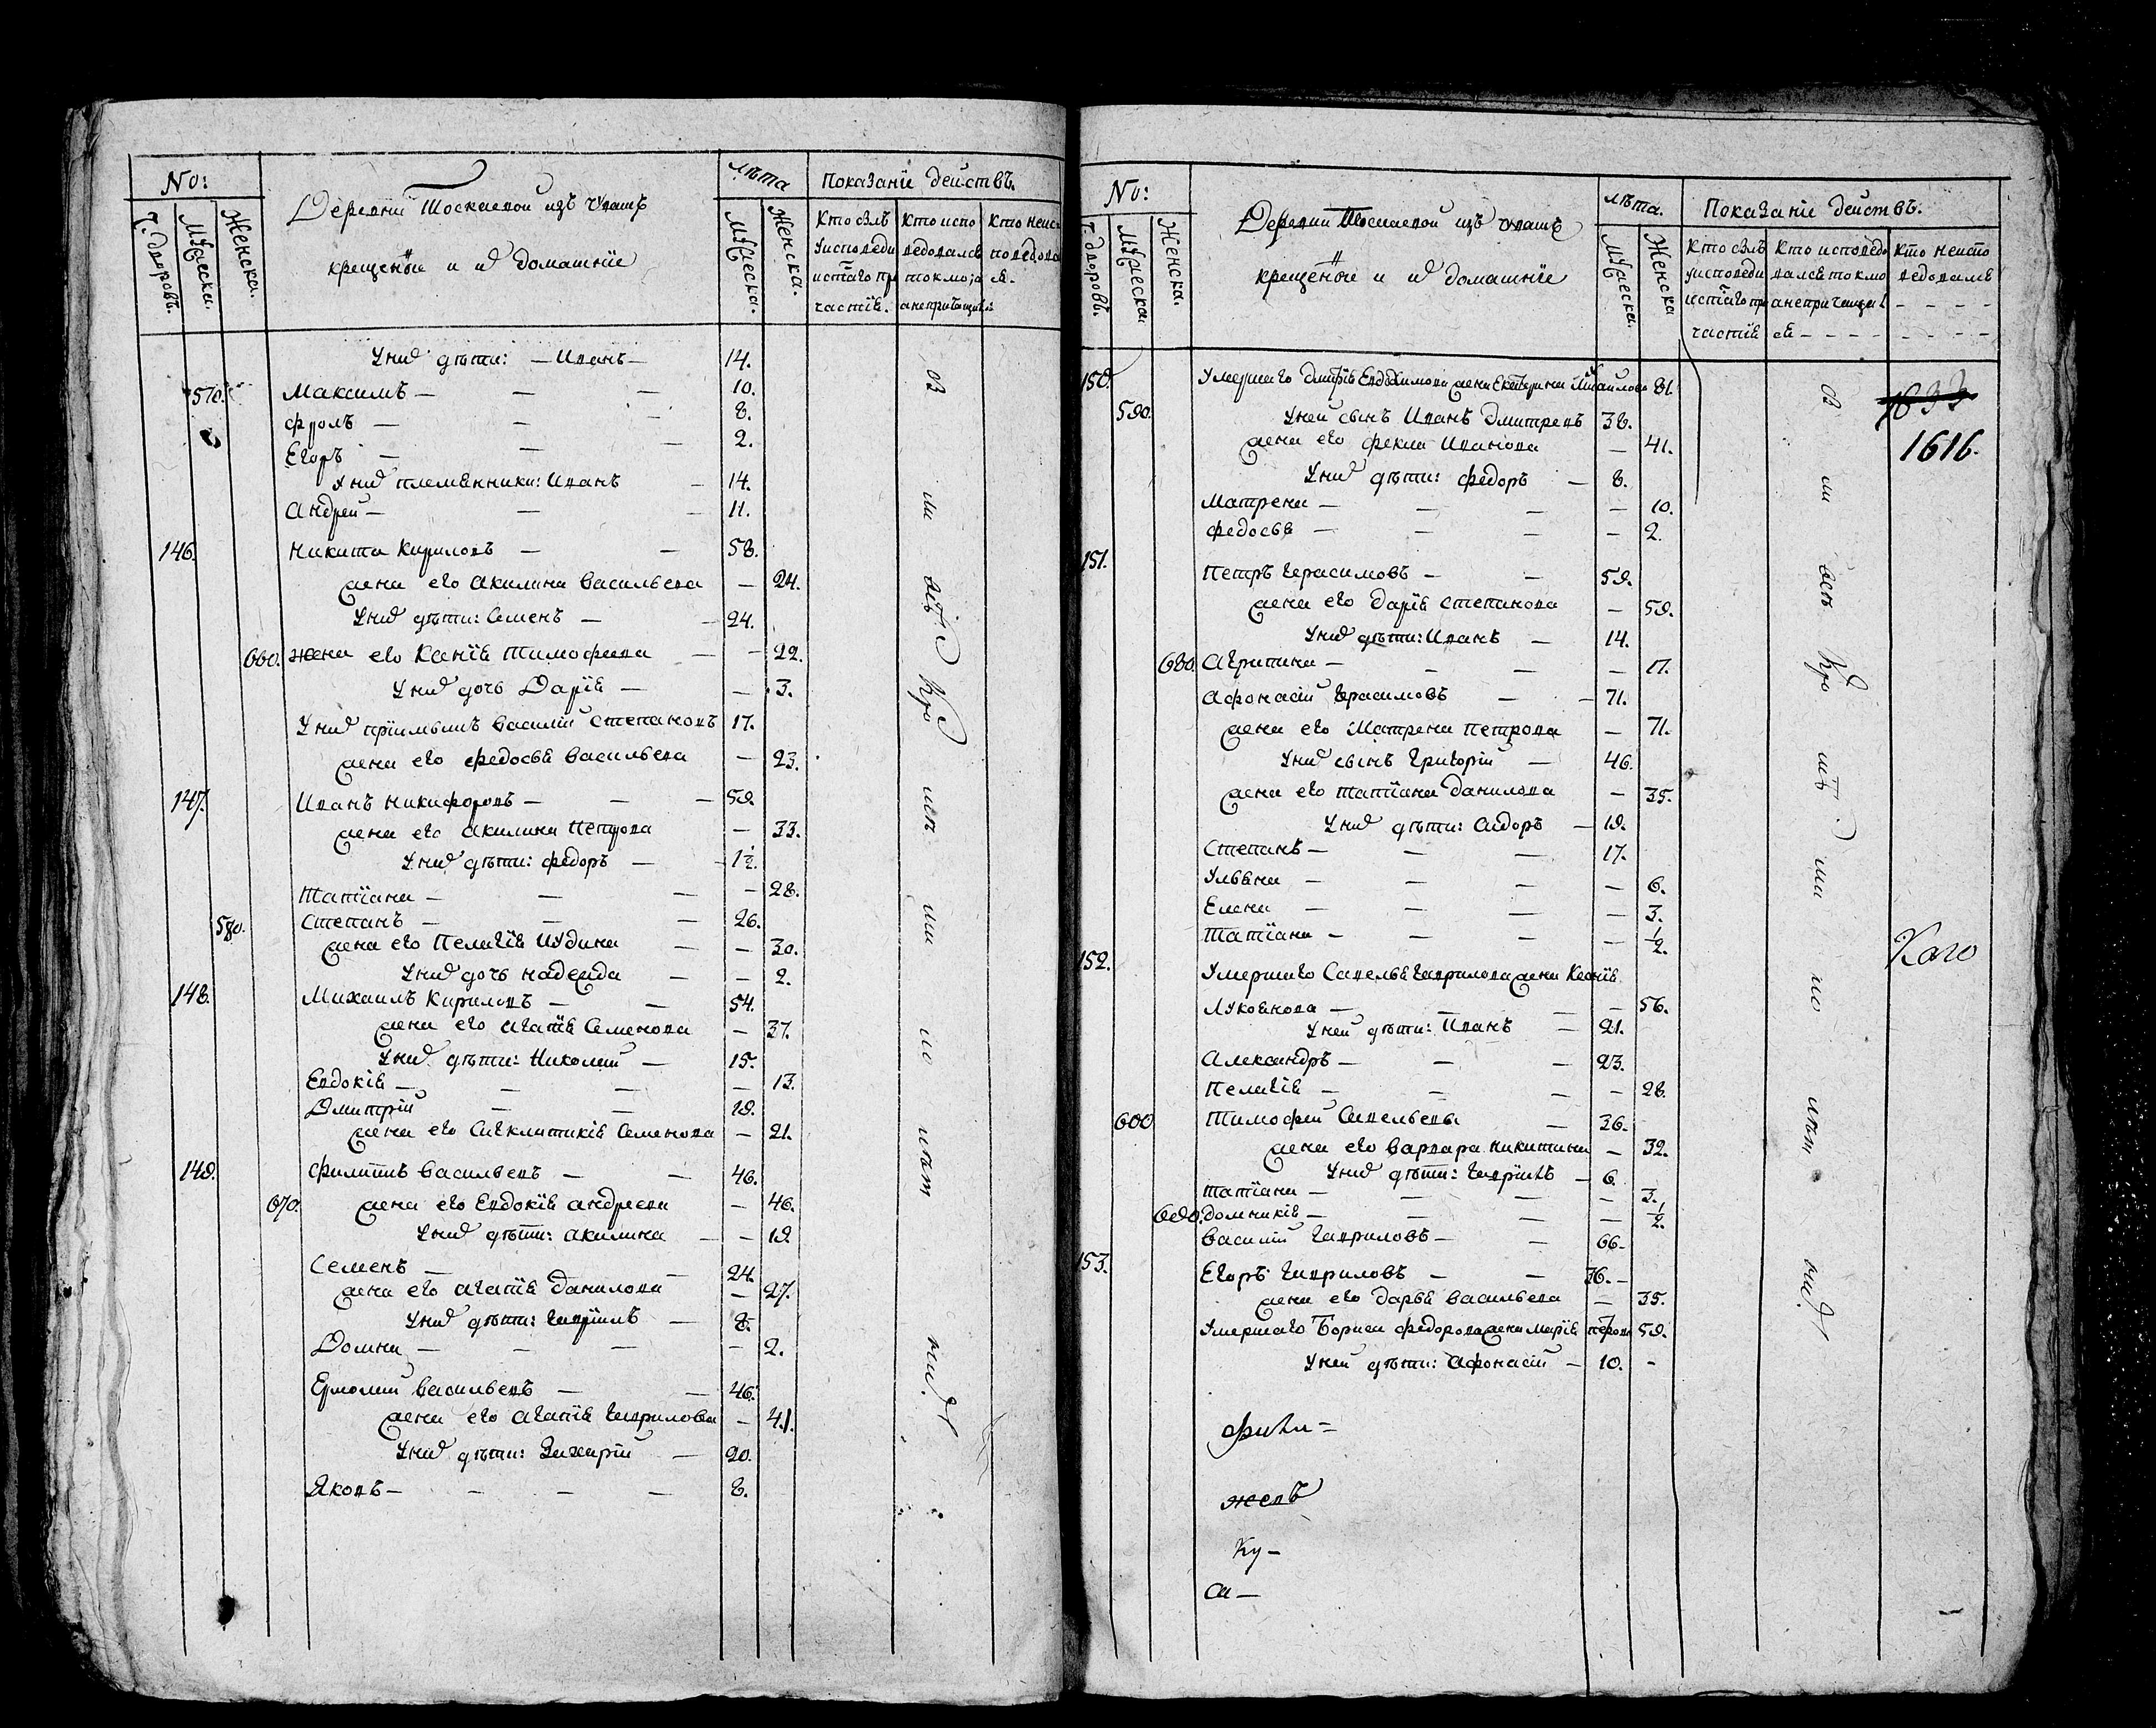 No:
Ч: дворовъ.
Мужеска.
Женска.
Деревни Тоскаевой изъ чувашъ
крещеныи и ихъ домашнїи
лѣта
Мужеска.
Женска.
Показанїи действъ.
Кто былъ
у исповеди
и стаго при
частїя.
Кто испо
ведовался
токмо, а
не причащался
Кто неис
поведова
ся.
У нихъ дѣти: — Иванъ — 14.
570. Максимъ — — — 10.
Фролъ — — — 8.
Егоръ — — — 2.
У нихъ племянники: Иванъ — 14.
Андрей — — — 11.
146. Никита Кириловъ — — 58.
жена его Акилина Васильева — 24.
У нихъ дѣти: Семенъ — — 24.
660. жена его Ксенїя Тимофеева — — 22.
У нихъ дочь Дарїя — — 3.
У нихъ прїимышъ Василїй Степановъ 17.
жена его Федосья Васильева — 23.
147. Иванъ Никифоровъ — — — 59.
жена его Акилина Петрова — 33.
У нихъ дѣти: Федоръ — — 1½.
Татїана — — — — 28.
580. Степанъ — — — 26.
жена его Пелагїя Иудина — — 30.
У нихъ дочь Надежда — — 2.
148. Михаилъ Кириловъ — — 54.
жена его Агапїя Семенова — 37.
У нихъ дѣти: Николай — 15.
Евдокїя — — — — 13.
Дмитрїй — — 19.
жена его Сигклитикїя Семенова — 21.
149. Филиппъ Васильевъ — — 46.
670. жена его Евдокїя Андреева — 46.
У нихъ дѣти: Акилина — — 19.
Семенъ — — 24.
жена его Агапїя Данилова — 27.
У нихъ дѣти: Гаврїилъ — 8.
Домна — — — — 2.
Ермолай Васильевъ — — 46.
жена его Агапїя Гаврилова — 41.
У нихъ дѣти: Захарїй — 20.
Яковъ — — — — 8.
No:
Ч: дворовъ.
Мужеска.
Женска.
Деревни Тоскаевой изъ чувашъ
крещеныи и ихъ домашнїи
лѣта.
Мужеска.
Женска
Показанїе действъ.
Кто былъ
у исповеди
и стаго при
частїя
Кто исповедо
вался токмо
а не причащал
ся — — — —
Кто неиспо
ведовался
— — — —
— — — —
150. Умершаго Дмитрїя Евдокимова жена Екатерина Михаилова 81.
590. У ней сынъ Иванъ Дмитревъ 38.
жена его Фекла Иванова — 41.
У нихъ дѣти: Федоръ — 8.
Матрена — — — — 10.
Федосья — — — — 2.
151. Петръ Герасимовъ — — 59.
жена его Дарїя Степанова — 59.
У нихъ дѣти: Иванъ — 14.
680. Агрипина — — — — 17.
Афонасїй Герасимовъ — — 71.
жена его Матрена Петрова — 71.
У нихъ сынъ Григорїй — 46.
жена его Татїана Данилова — 35.
У нихъ дѣти: Сидоръ — 19.
Степанъ — — — 17.
Ульяна — — — — 6.
Елена — — — — 3.
Татїана — — — — ½.
152. Умершаго Савелья Гаврилова жена Ксенїя
Лукоянова — — — — 56.
У ней дѣти: Иванъ — 21.
Александръ — — — 23.
Пелагїя — — — — 28.
600 Тимофей Савельевъ — 36.
жена его Варвара Никитина — 32.
У нихъ дѣти: Гаврїилъ — 6.
Татїана — — — — 3.
690. Домникїя — — — — ½.
Василїй Гавриловъ — — 66.
153. Егоръ Гавриловъ — — 36. —
жена его Дарья Васильева — 35.
Умершаго Бориса Федорова жена Марїя Петрова 59.
У ней дѣти: Афонасїй — 10. —
1633
1616.